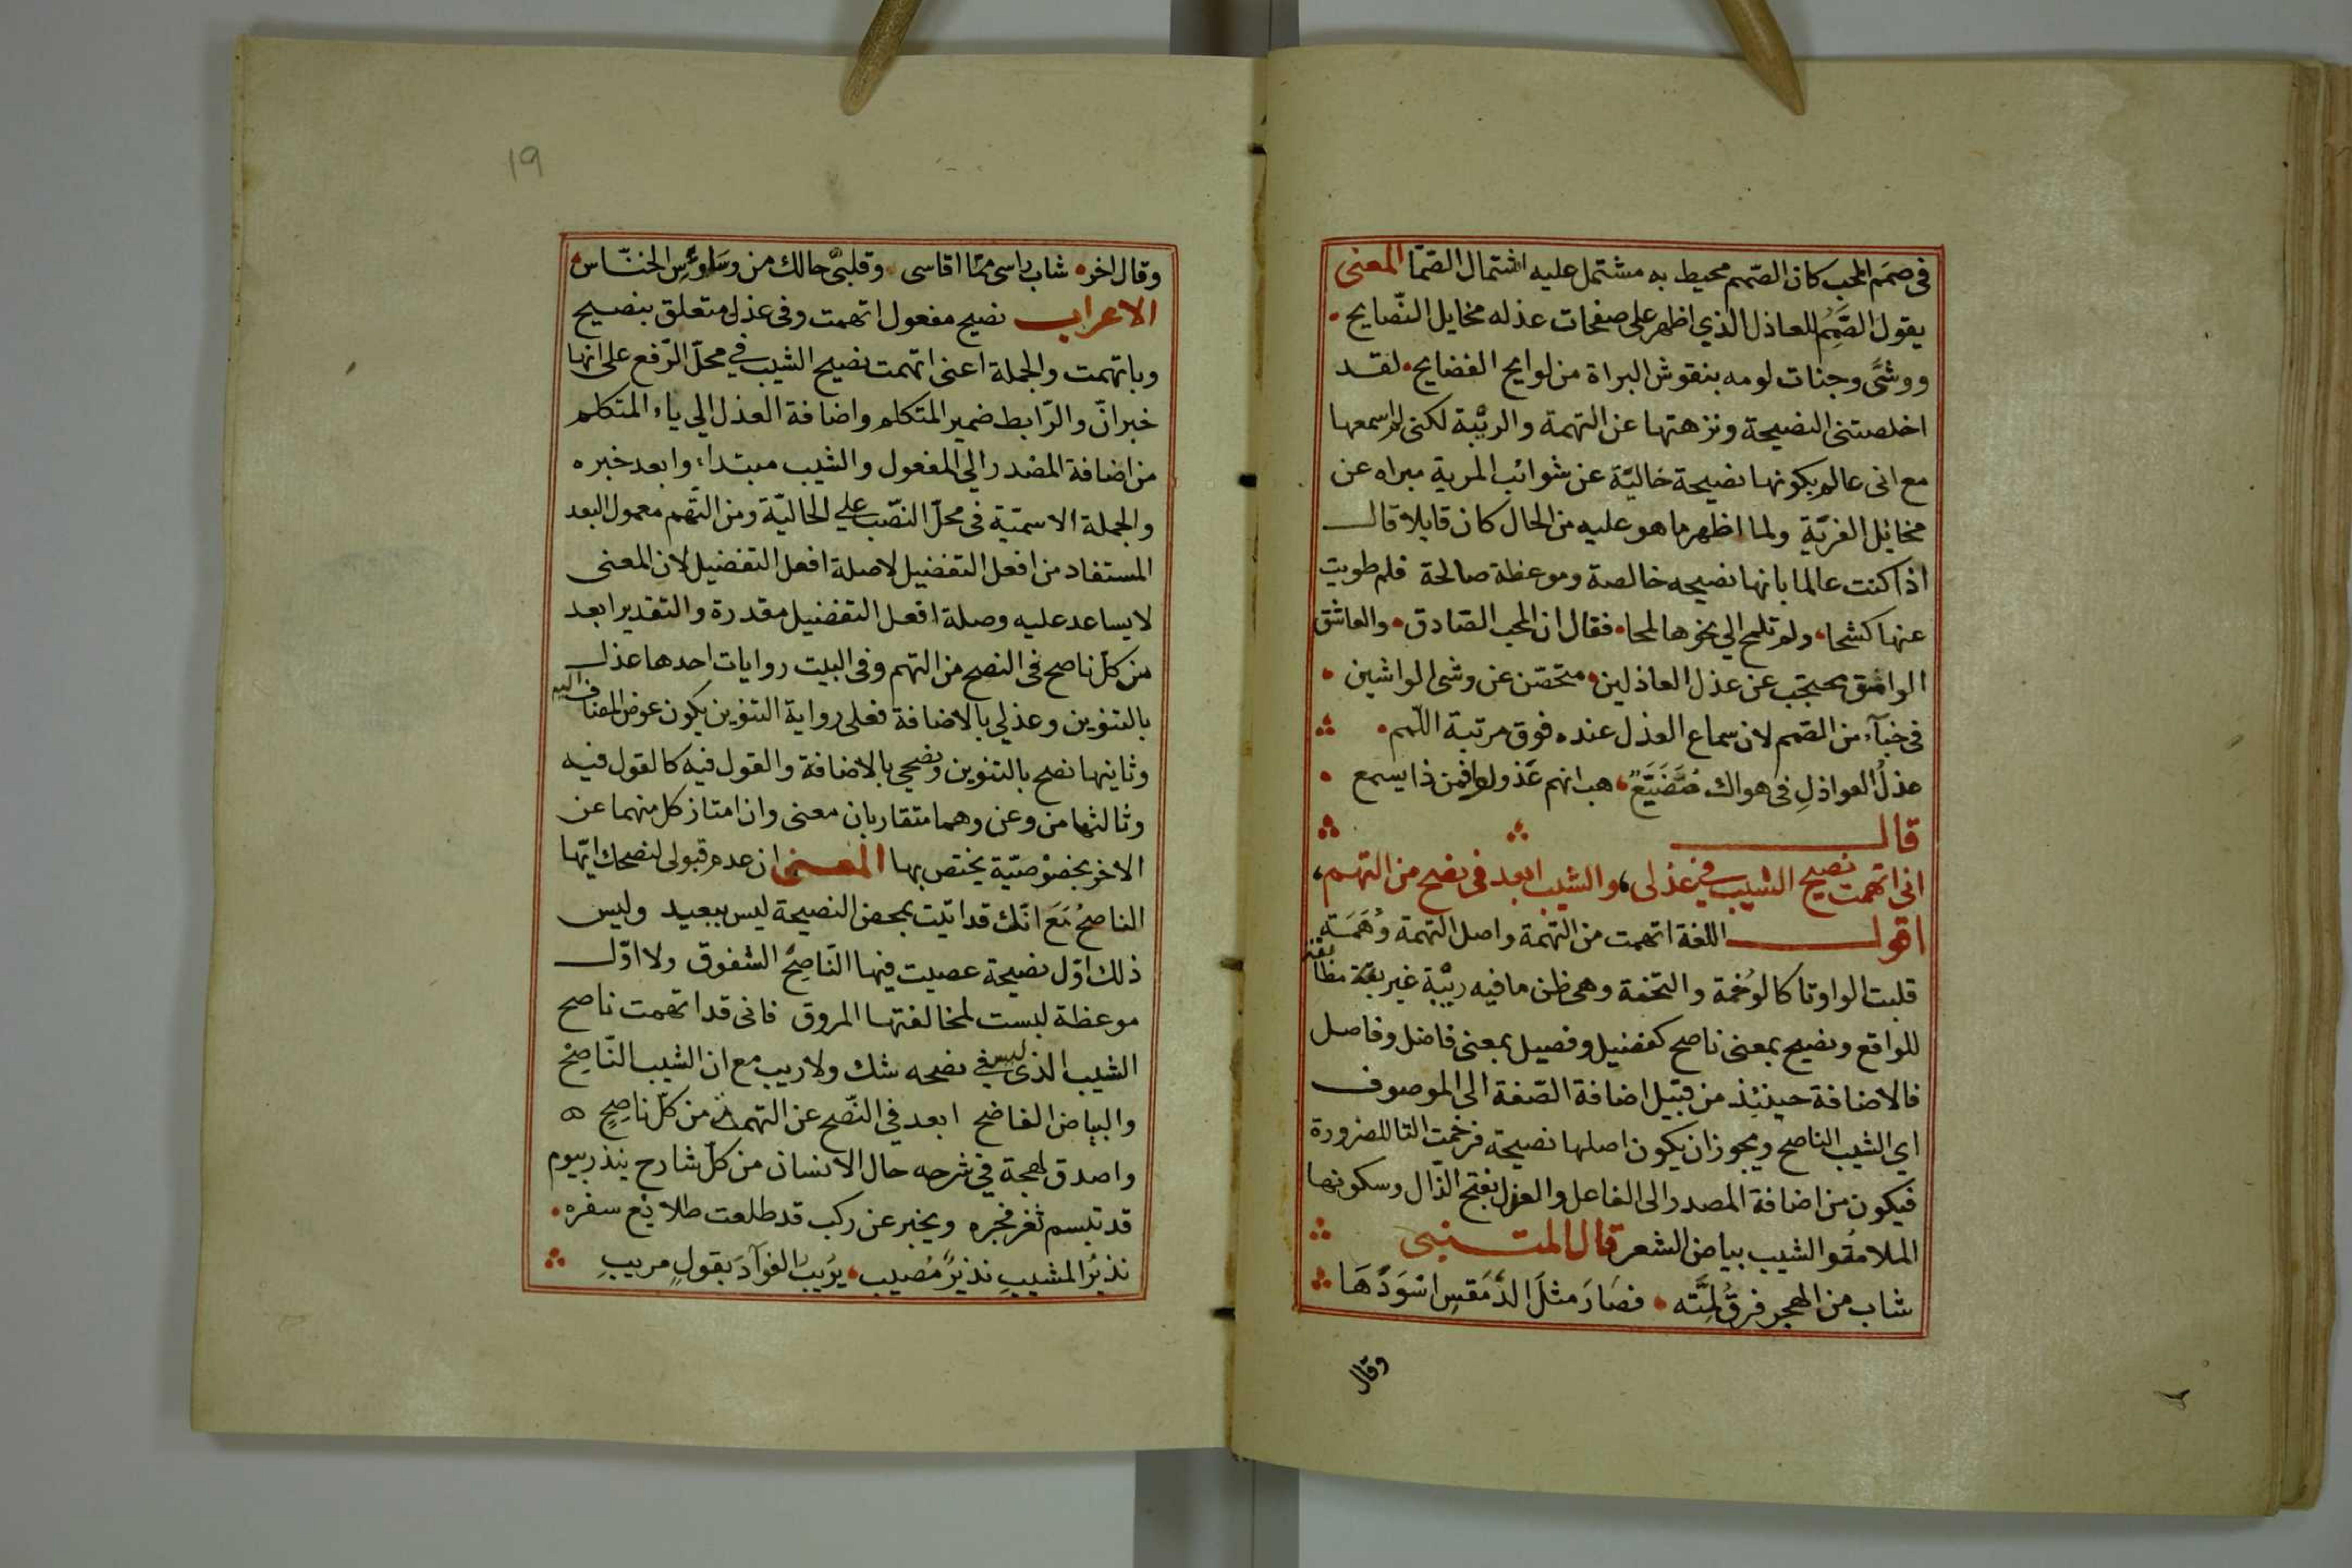 في صمم المحب كان الصمم محيط به مشتمل عليه اشتمال الصما المعنى
يقول الصمم للعاذل الذي اظهر على صفحات عذله مخايل النّصايح
ووشّى وجنات لومه بنقوش البراة من لوايح الفضايح لقد
اخلصتنى النصيحة ونزهتها عن التهمة والريبة لكنى لم اسمعها
مع انى عالم بكونها نصيحة خالية عن شوائب المرية مبراه عن
مخائل الفريّة ولما اظهر ما هو عليه من الحال كان قايلا قال
اذا كنت عالما بانها نصيحه خالصة وموعظة صالحة فلم طويت
عنها كشحا ولم تلمح الي نحوها لمحا فقال ان المحب الصّادق والعاشق
الوامق محتجب عن عذل العاذلين متحصّن عن وشى الواشين
فى خبآء من الصمم لان سماع العذل عنده فوق مرتبة اللّمم
عذلُ العواذلِ فى هواك مُضَيَّعٌ هب انهم عذولوا فمن ذا يسمع
قال
انى اتهمت نصيح الشيب في عذلى والشيب ابعد فى نصح من التهم
اقول اللغة اتهمت من التهمة واصل التهمة وُهَمَة
قلبت الواو تا كالوُخمة والتخمة وهى ظن ما فيه ريبة غير مطابقة
للواقع ونصيح بمعنى ناصح كفضيل وفصيل بمعنى فاضل وفاصل
فالاضافة حينئذ من قبيل اضافة الصّفة الى الموصوف
اي الشيب الناصح ويجوز ان يكون اصلها نصيحة فرخمت التا للضرورة
فيكون من اضافة المصدر الى الفاعل والعذل بفتح الذّال وسكونها
الملامة والشيب بياض الشعر قال المتنبى
شاب من الهجر فرقُ لِمَّته فصَارَ مثلَ الدَّمَقسِ اسْوَدُهَا
وقال
19
وقال اخر شاب راسى ممّا اقاسى وقلبىَ حالك من وساوس الخنّاس
الاعراب نصيح مفعول اتهمت وفى عذل متعلق بنصيح
وباتهمت والجملة اعنى اتّهمت نصيح الشيب في محلّ الرّفع على انها
خبر انّ والرّابط ضمير المتكلم واضافة العذل الي ياء المتكلم
من اضافة المصدر الي المفعول والشيب مبتداء وابعد خبره
والجملة الاسميّة فى محلّ النصّب علي الحاليّة ومن التّهم معمول البعد
المستفاد من افعل التفضيل لا صلة افعل التفضيل لان المعنى
لا يساعد عليه وصلة افعل التفضيل مقدرة والتقدير ابعد
من كلّ ناصح فى النصح من التهم وفى البيت روايات احدها عذل
بالتنوين وعذلي بالاضافة فعلى رواية التنوين يكون عوض المضاف اليه
وثانيها نصح بالتنوين ونصحي بالاضافة والقول فيه كالقول فيه
وثالثها من وعن وهما متقاربان معنى وان امتاز كل منهما عن
الاخر بخصوصيّة يختص بها المعنى ان عدم قبولى لنصحك ايّها
الناصحُ مَعَ انّك قد اتيت بمحض النصيحة ليس ببعيد وليس
ذلك اوّل نصيحة عصيت فيها النّاصحُ الشفوق ولا اوّل
موعظة لبست لمخالفتها المروق فانى قد اتهمت ناصح
الشيب الذى ليس في نصحه شك ولا ريب مع ان الشيب النّاصح
والبياض الفاضح ابعد في النّصح عن التهمة من كلّ ناصِحٍ
واصدق لهجة في شرحه حال الانسان من كلّ شارح ينذر بيوم
قد تبسم ثغر فجره ويخبر عن ركب قد طلعت طلائع سفره
نذيرُ المشيبِ نذيرٌ مُصيب يرُيبُ الفوآدَ بقولٍ مريبِ